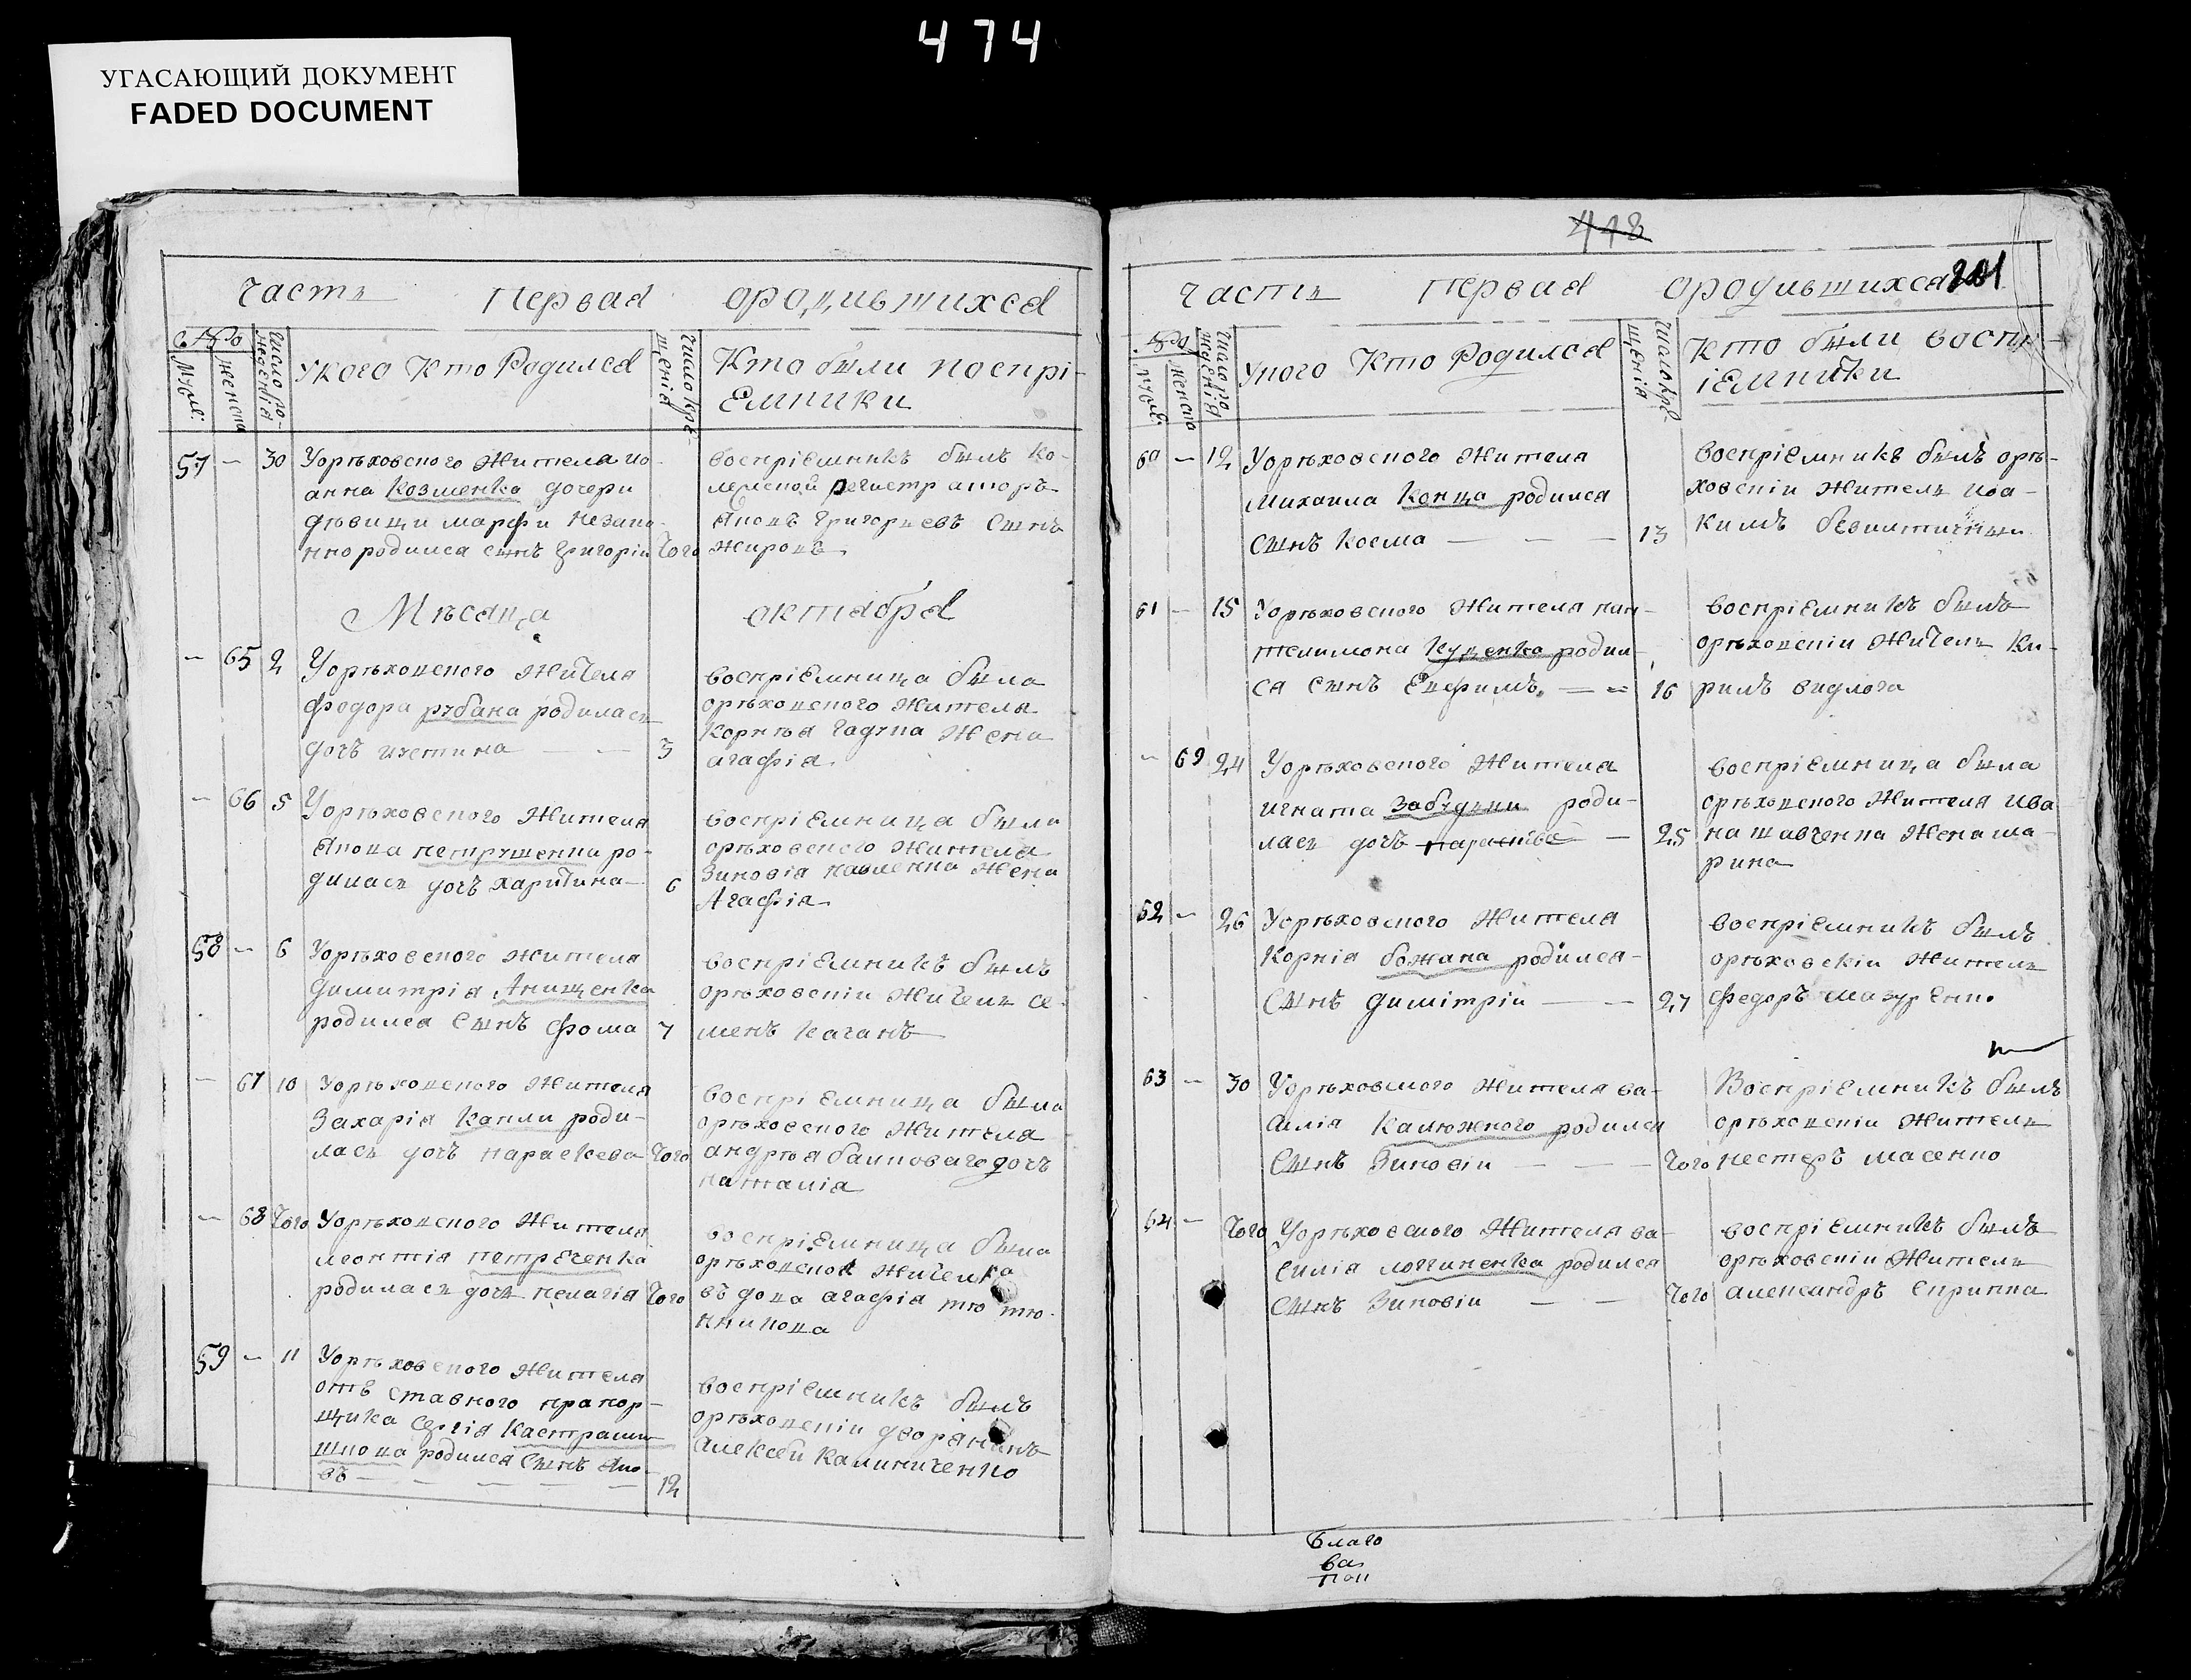 474
УГАСАЮЩИЙ ДОКУМЕНТ
FADED DOCUMENT
часть Первая ородившихся
Число рождения
мужес:
женска
Укого Кто Родился
Число кре-
щенія
Кто были воспрі-
Емники
57 — 30 Уорѣховского жителя Ио-
анна Козменка дочери
дѣвици марфи незако-
нно родился сынъ григорій того
воспріемникъ былъ ко-
лежской регистраторъ
Яковъ григориевъ сынъ
жировъ
Мѣсяца октября
— 65 2 Уорѣховского жителя
федора рубана родилась
дочъ иустина — — 3
воспріемница была
орѣховского жителя
Корнѣя гадуна жена
агафія
— 66 5 Уорѣховского жителя
Якова петрушенка ро-
дилась дочъ харитина — 6
воспріемница была
орѣховского жителя
Зиновія павленка жена
Агафія
58 — 6 Уорѣховского жителя
димитрія Анищенка
родился сынъ фома 7
воспріемникъ былъ
орѣховскій житель се-
менъ каганъ
— 67 10 Уорѣховского жителя
Захарія Капли роди-
лась дочъ параскева того
воспріемница была
орѣховского жителя
андрѣя балковаго дочъ
наталія
— 68 того Уорѣховского жителя
леонтія петреченка
родилась дочь пелагія того
воспріемница была
орѣховской жителка
вдова агафія тютю-
нникова
59 — 11 Уорѣховского жителя
отъставного прапор-
щика Сергія Кастрами-
шнова родился сынъ Яко-
въ — — — — — 12
воспріемникъ былъ
орѣховскій дворянинъ
алексѣй Калиниченко
448
часть первая ородившихся 201
Число рождения
мужес:
женска
Укого Кто Родился
Число кре-
щенія
Кто были воспр-
іемники
60 — 12 Уорѣховского жителя
михаила Конца родился
сынъ Косма — — — 13
воспріемникъ былъ орѣ-
ховскій житель иоа-
кимъ
61 — 15 Уорѣховского жителя пан-
телимона Куценка родил-
ся сынъ Евфимъ — — 16
воспріемникъ былъ
орѣховскій житель Ки-
рилъ видлога
— 69 24 Уорѣховского жителя
игната Забудки роди-
лась дочъ — 25
воспріемница была
орѣховского жителя ива-
на шавченка жена ма-
рина
62 — 26 Уорѣховского жителя
Корнія божана родился
сынъ димітрій — — 27
воспріемникъ былъ
орѣховскій житель
федоръ мазуренко
63 — 30 Уорѣховского жителя ва-
силія Калюжного родился
сынъ Зиновій — — — того
Воспріемникъ былъ
орѣховскій житель
нестеръ масенко
64 — того Уорѣховского жителя ва-
силія логвиненка родился
сынъ Зиновій — — того
воспріемникъ былъ
орѣховскій житель
александръ скрипка
благо